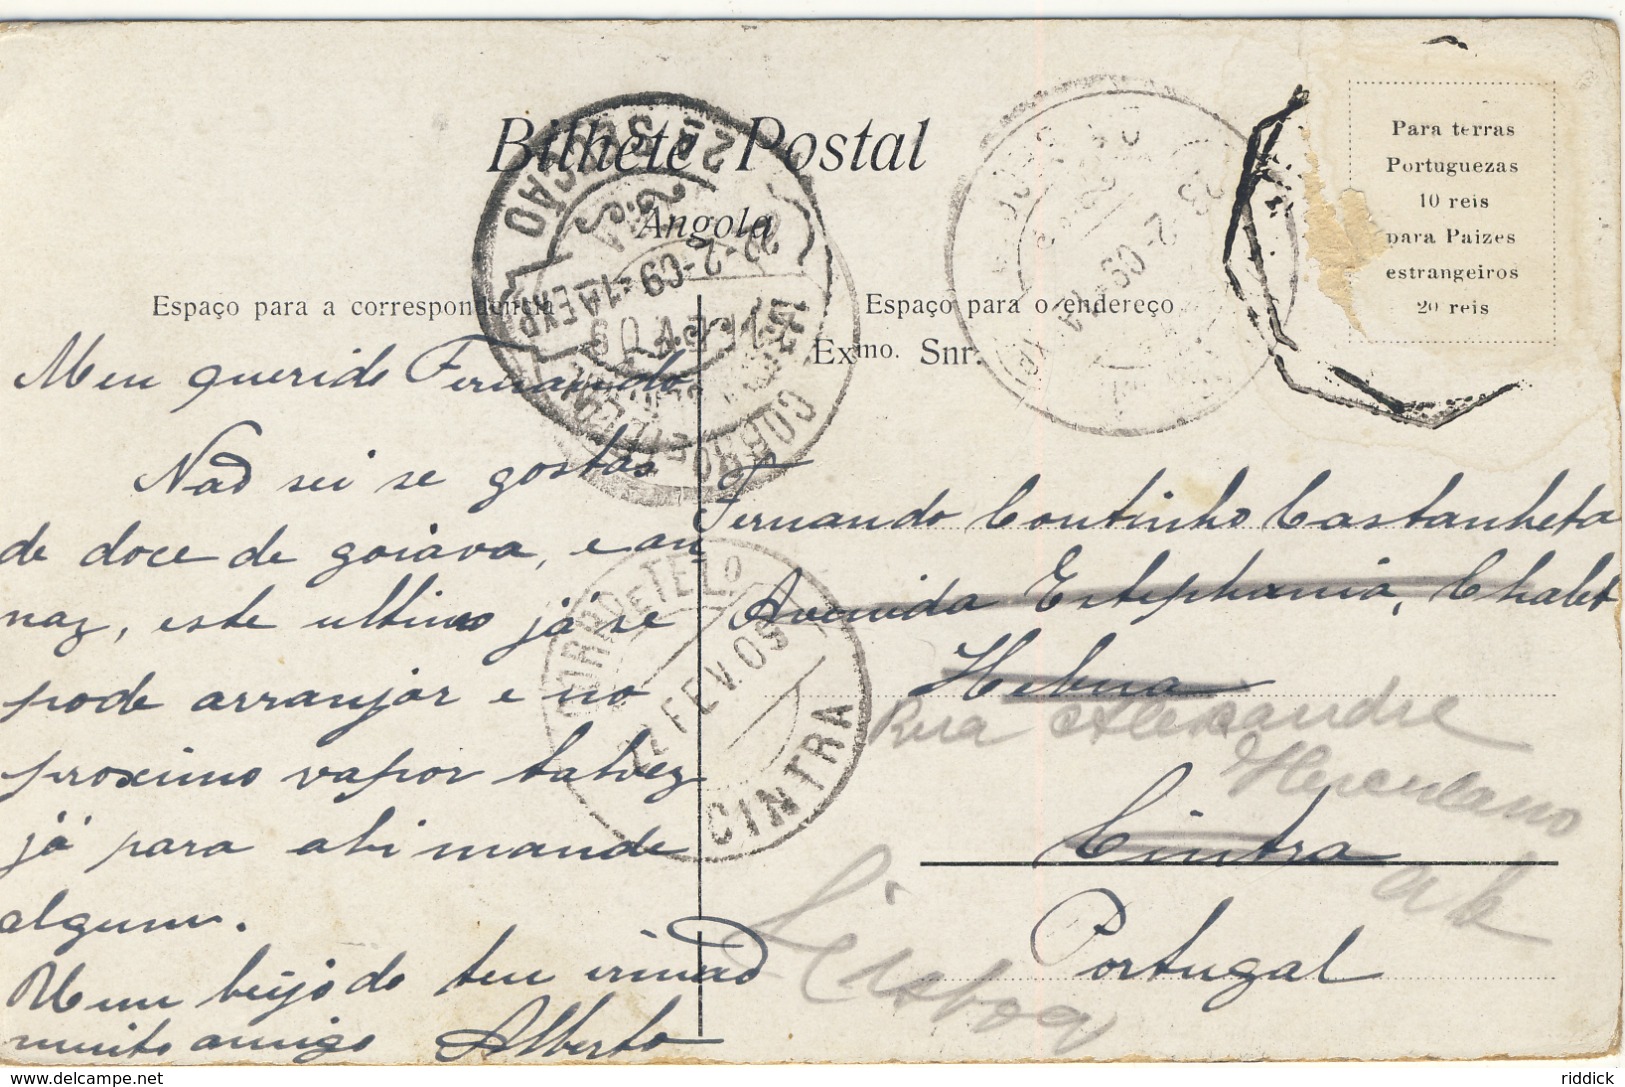 Bilhete Postal
Angola
Espaço para a correspondencia
Espaço para o endereço
Exmo. Snr.
Para terras
Portuguezas
10 reis
para Paizes
estrangeiros
20 reis
Meu querido Fernando
Não sei se gostas
de doce de goiava, e an
naz, este ultimo já se
pode arranjar e no
proximo vapor talvez
já para ahi mande
algum.
Um beijo do teu irmão
muito amigo Alberto
Fernando Coutinho Castanheta
Avenida Estephania, Chalet
Rua Alexandre
Herculano
Cintra
Lisboa
Portugal
CORREIO E TELO
12 FEV. 09
CINTRA
2ª SECÇÃO
-2-09
riddick